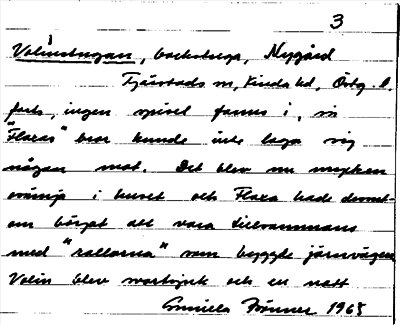 3
Volinstugan, backstuga, Nygård
Tjärstads sn, Kinda hd, Östg. l.
forts, ingen spisel fanns i, så
"Flaxas" bror kunde inte laga sig
någon mat. Det blev nu mycken
osämja i huset och Flaxa hade dessut-
om börjat att vara tillsammans
med "rallarna" som byggde järnvägen
Volin blev svartsjuk och en natt
Gunnela Fröner 1965